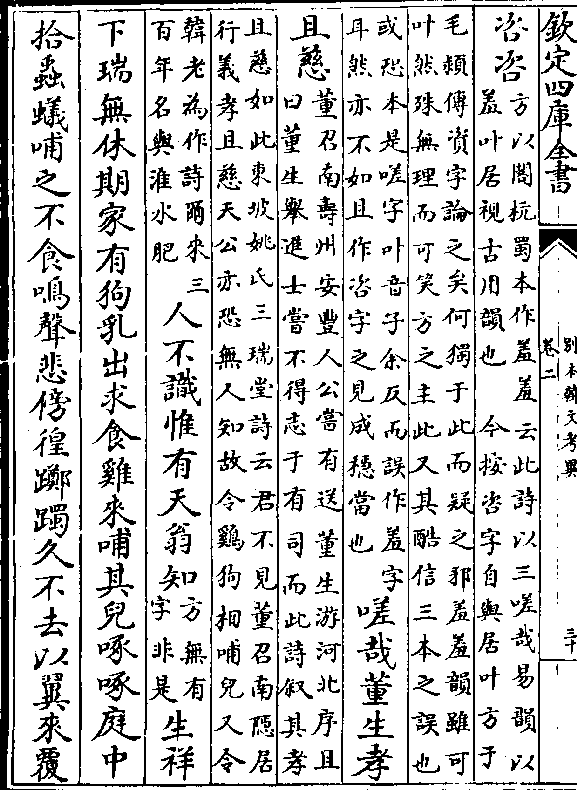 欽定四庫全書
卷二
別本韓文考異
三十
咨咨
方以閣杭蜀本作羞羞云此詩以三嗟哉易韻以
羞叶居視古用韻也　今按咨字自與居叶方于
毛穎傳資字論之矣何獨于此而疑之邪羞羞韻雖可
叶然殊無理而可笑方之主此又其酷信三本之誤也
或恐本是嗟字叶音子余反而誤作羞字
耳然亦不如且作咨字之見成穩當也
嗟哉董生孝
且慈
董召南壽州安豐人公嘗有送董生游河北序且
曰董生舉進士嘗不得志于有司而此詩叙其孝
且慈如此東坡姚氏三瑞堂詩云君不見董召南隱居
行義孝且慈天公亦恐無人知故令鷄狗相哺兒又令
韓老為作詩爾來三
百年名與淮水肥
人不識惟有天翁知
方無有
字非是
生祥
下瑞無休期家有狗乳出求食雞來哺其兒啄啄庭中
拾蟲蟻哺之不食鳴聲悲傍徨躑躅久不去以翼來覆